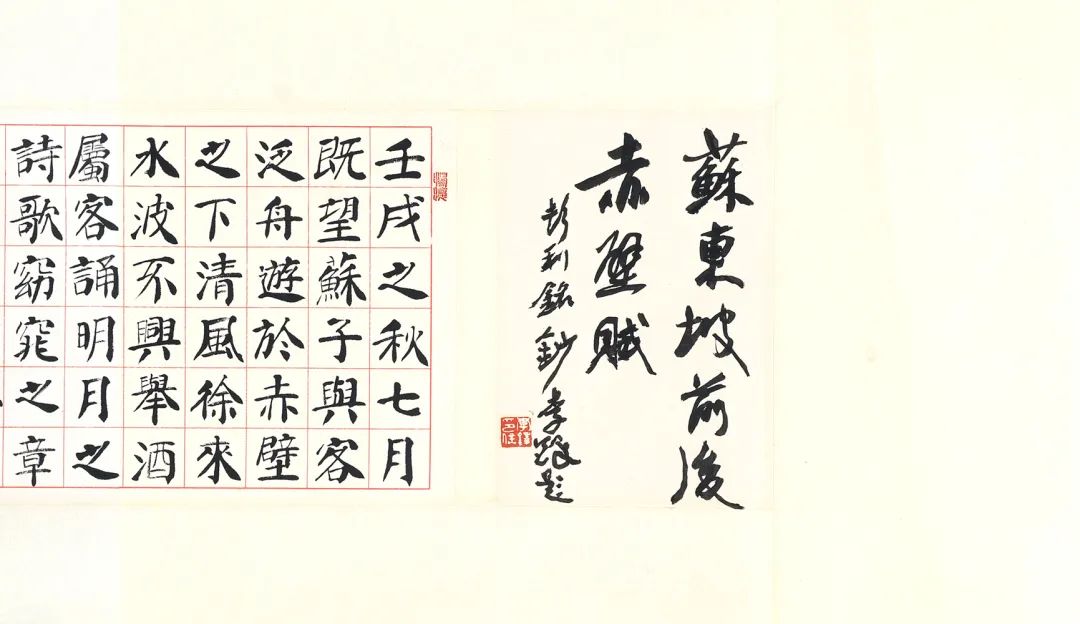 蘇東坡前後
赤壁賦
彭利銘鈔 李題
壬戌之秋七月
既望蘇子與客
泛舟遊於赤壁
之下清風徐來
水波不興舉酒
屬客誦明月之
詩歌窈窕之章